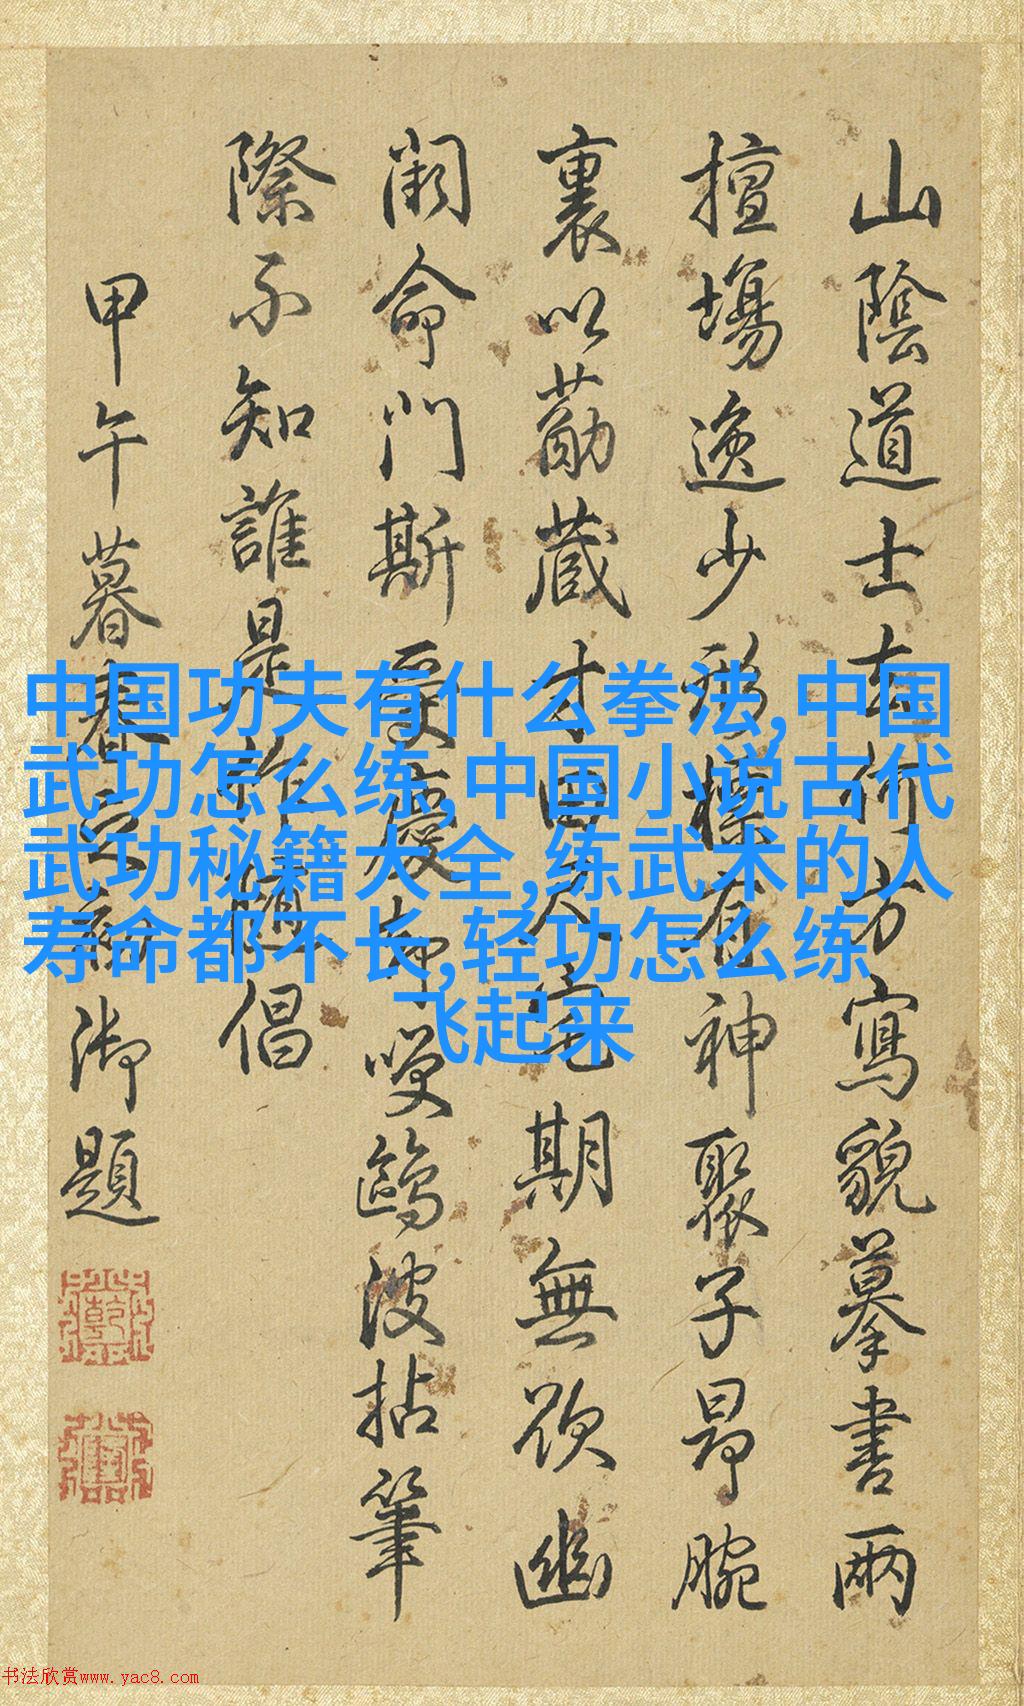 山陰道士在何方寫貌摹書兩
擅場逸少標有神聚子昂腕
裏以勗蔵才期無欲幽
命門斯波拈筆
際不知誰是倡
甲午暮春御題
中国功夫有什么拳法,中国
武功怎么练,中国小说古代
武功秘籍大全,练武术的人
寿命都不长,轻功怎么练
飞起来
书法欣赏www.yac8.com